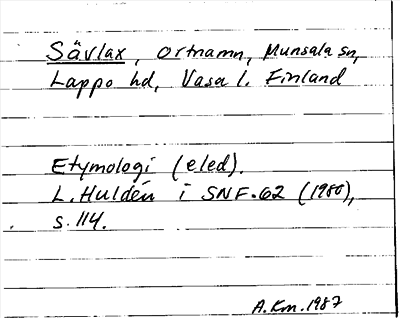 Sävlax, ortnamn, Munsala sn,
Lappo hd, Vasa l. Finland
Etymologi (eled).
L. Huldén i SNF.62 (1980),
s. 114.
A.Km.1987